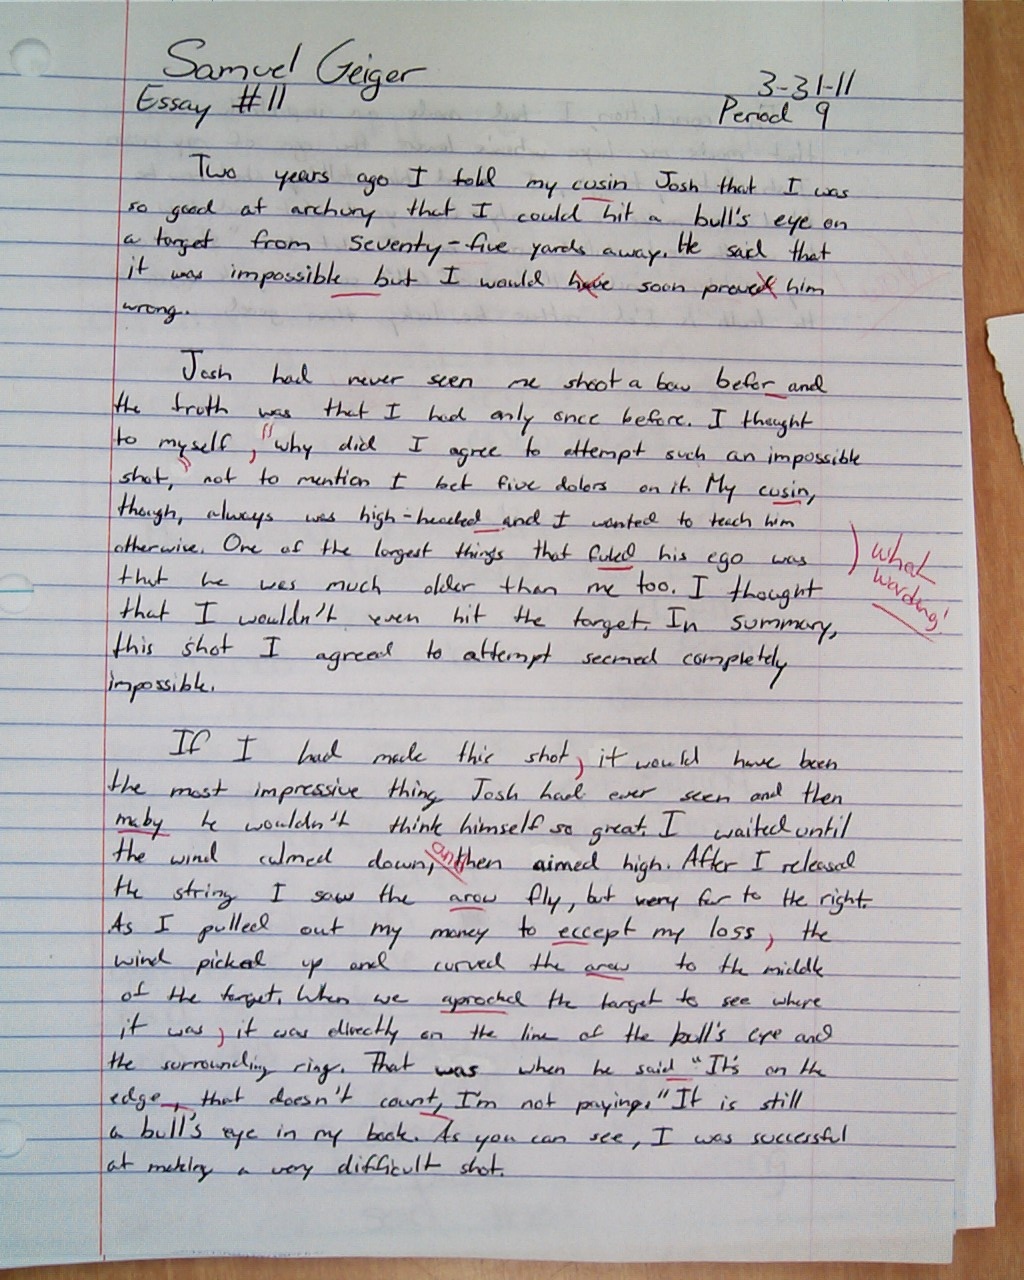 Samuel Geiger
3-31-11
Essay #11
Period 9
Two years ago I told my cusin Josh that I was
so good at archury that I could hit a bull's eye on
a target from seventy-five yards away. He said that
it was impossible but I would have soon proved him
wrong.
Josh had never seen me shoot a bow befor and
the truth was that I had only once before. I thought
to myself, "why did I agree to attempt such an impossible
shot," not to mention I bet five dolors on it. My cusin,
though, always was high-headed and I wanted to teach him
otherwise. One of the largest things that fuled his ego was
what
that he was much older than me too. I thought
wording!
that I wouldn't even hit the target. In summary,
this shot I agreed to attempt seemed completely
impossible.
If I had made this shot, it would have been
the most impressive thing Josh had ever seen and then
maby he wouldn't think himself so great. I waited until
the wind calmed down, and then aimed high. After I released
the string I saw the arow fly, but very far to the right.
As I pulled out my money to eccept my loss, the
wind picked up and curved the arow to the middle
of the target. When we aproched the target to see where
it was, it was directly on the line of the bull's eye and
the surrounding ring. That was when he said "It's on the
edge, that doesn't count, I'm not paying." It is still
a bull's eye in my book. As you can see, I was successful
at making a very difficult shot.